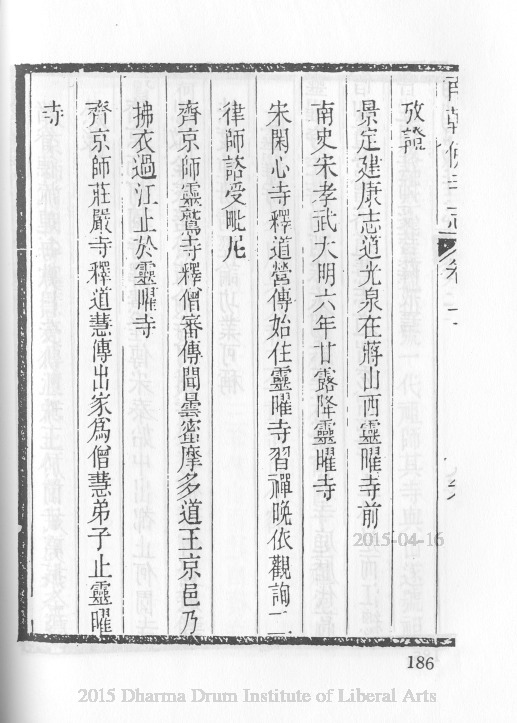 攷證
景定建康志道光泉在蔣山西靈曜寺前
南史宋孝武大明六年甘露降靈曜寺
宋閑心寺釋道營傳始住靈曜寺習禪晚依觀詢二
律師諮受毗尼
齊京師靈鷲寺釋僧審傳聞曇蜜摩多道王京邑乃
拂衣過江止於靈曜寺
齊京師莊嚴寺釋道慧傳出家爲僧慧弟子止靈曜
寺
186
2015-04-16
2015 Dharma Drum Institute of Liberal Arts